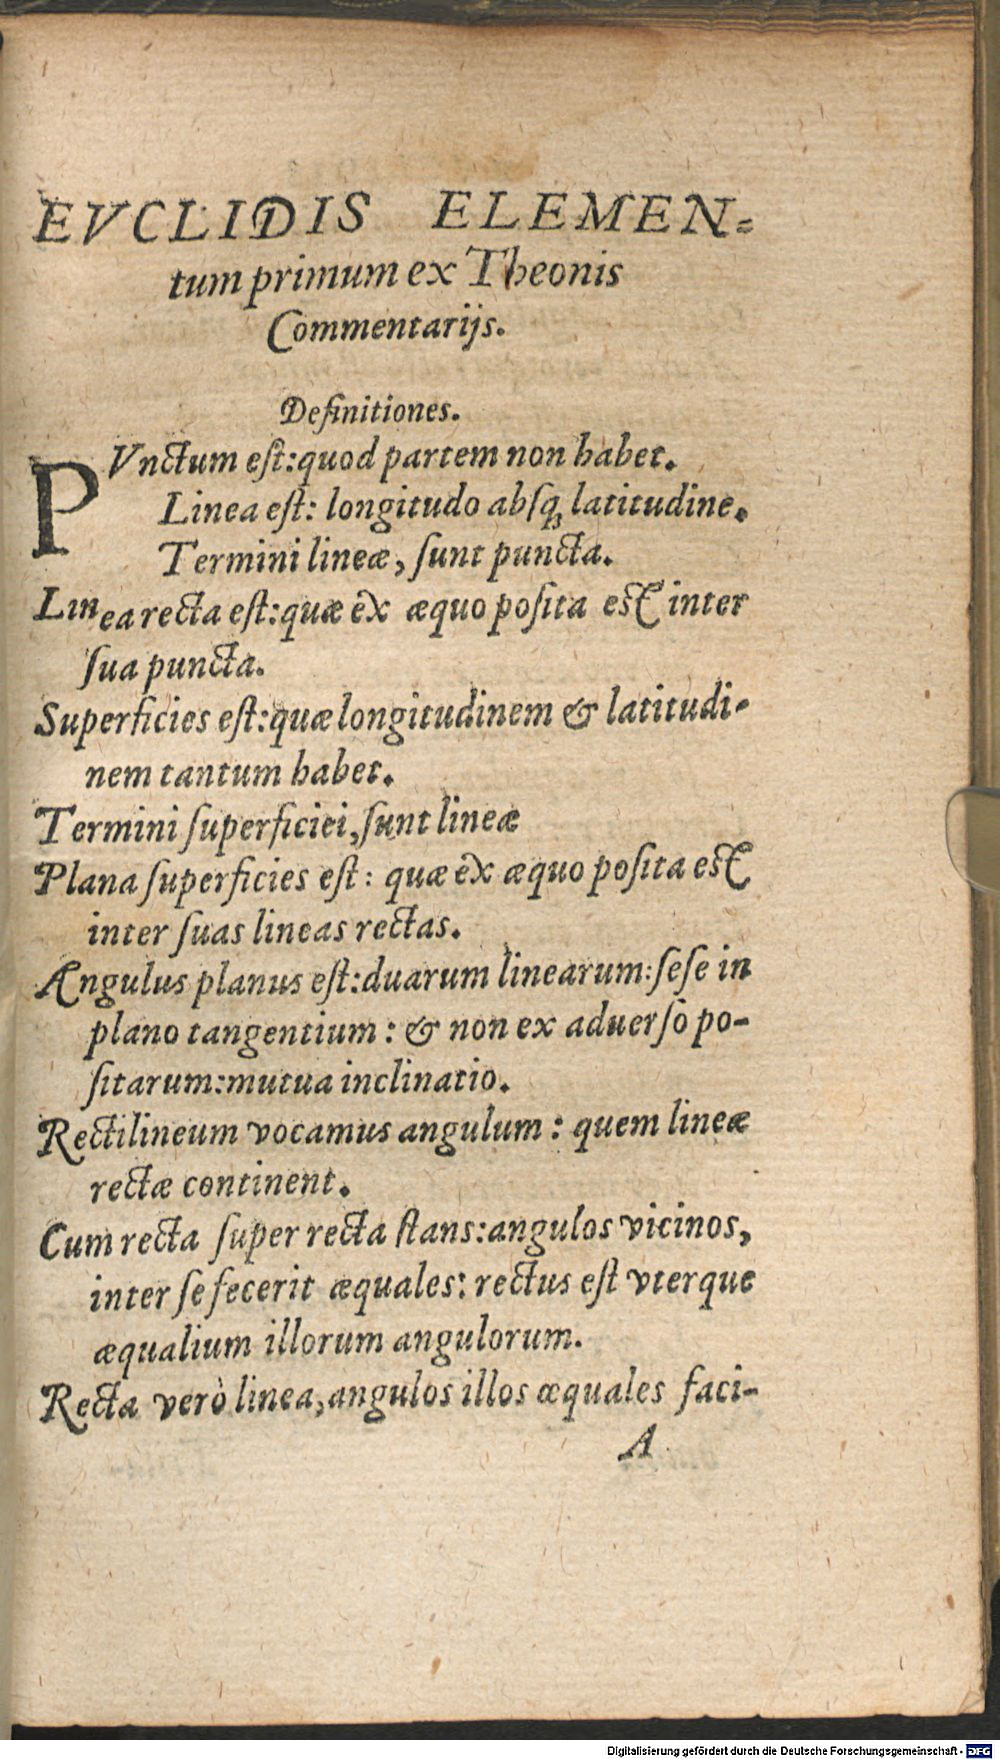 EVCLIDIS ELEMEN=
tum primum ex Theonis
Commentarijs.
Definitiones.
PVnctum eſt:quod partem non habet.
Linea eſt: longitudo abſqꝫ latitudine.
Termini lineæ, ſunt puncta.
Linea recta eſt:quæ ex æquo poſita est inter
ſua puncta.
Superficies eſt:quæ longitudinem & latitudi-
nem tantum habet.
Termini ſuperficiei,ſunt lineæ
Plana ſuperficies eſt: quæ ex æquo poſita est
inter ſuas lineas rectas.
Angulus planus eſt:duarum linearum:ſeſe in
plano tangentium: & non ex aduerſo po-
ſitarum:mutua inclinatio.
Rectilineum vocamus angulum: quem lineæ
rectæ continent.
Cum recta ſuper recta ſtans:angulos vicinos,
inter ſe fecerit æquales: rectus eſt vterque
æqualium illorum angulorum.
Recta verò linea,angulos illos æquales faci-
A
Digitalisierung gefördert durch die Deutsche Forschungsgemeinschaft - DFG